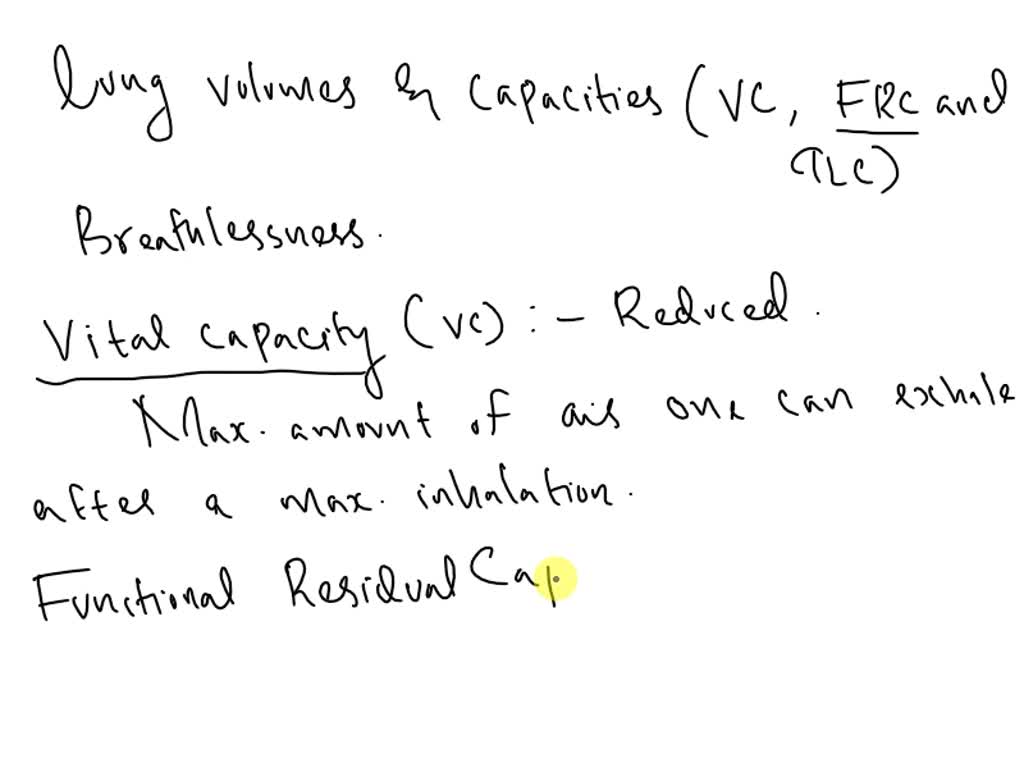 Lung volumes & capacities (VC, FRC and
TLC)
Breathlessness.
Vital capacity (VC) :- Reduced.
Max. amount of air one can exhale
after a max. inhalation.
Functional Residual Cap